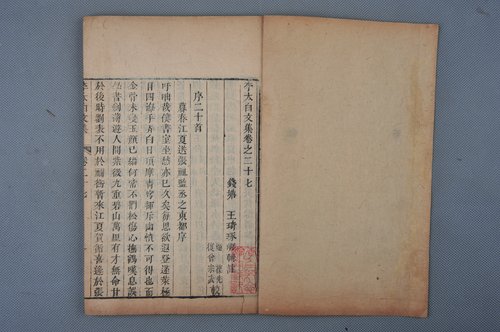 李太白文集卷之二十七
錢塘 王琦琢崖輯註
復曾宗武較
序二十首
暮春江夏送張祖監丞之東都序
吁咄哉僕書室坐愁亦已久矣每思欲遐登蓬萊極
目四海手弄白日頂摩青穹揮斥幽憤不可得也而
金骨未變玉顏已緇何常不捫松傷心撫鶴歎息誤
學書劍薄遊人間紫微九重碧山萬里有才無命甘
於後時劉表不用於禰衡暫來江夏賀循喜逢於張